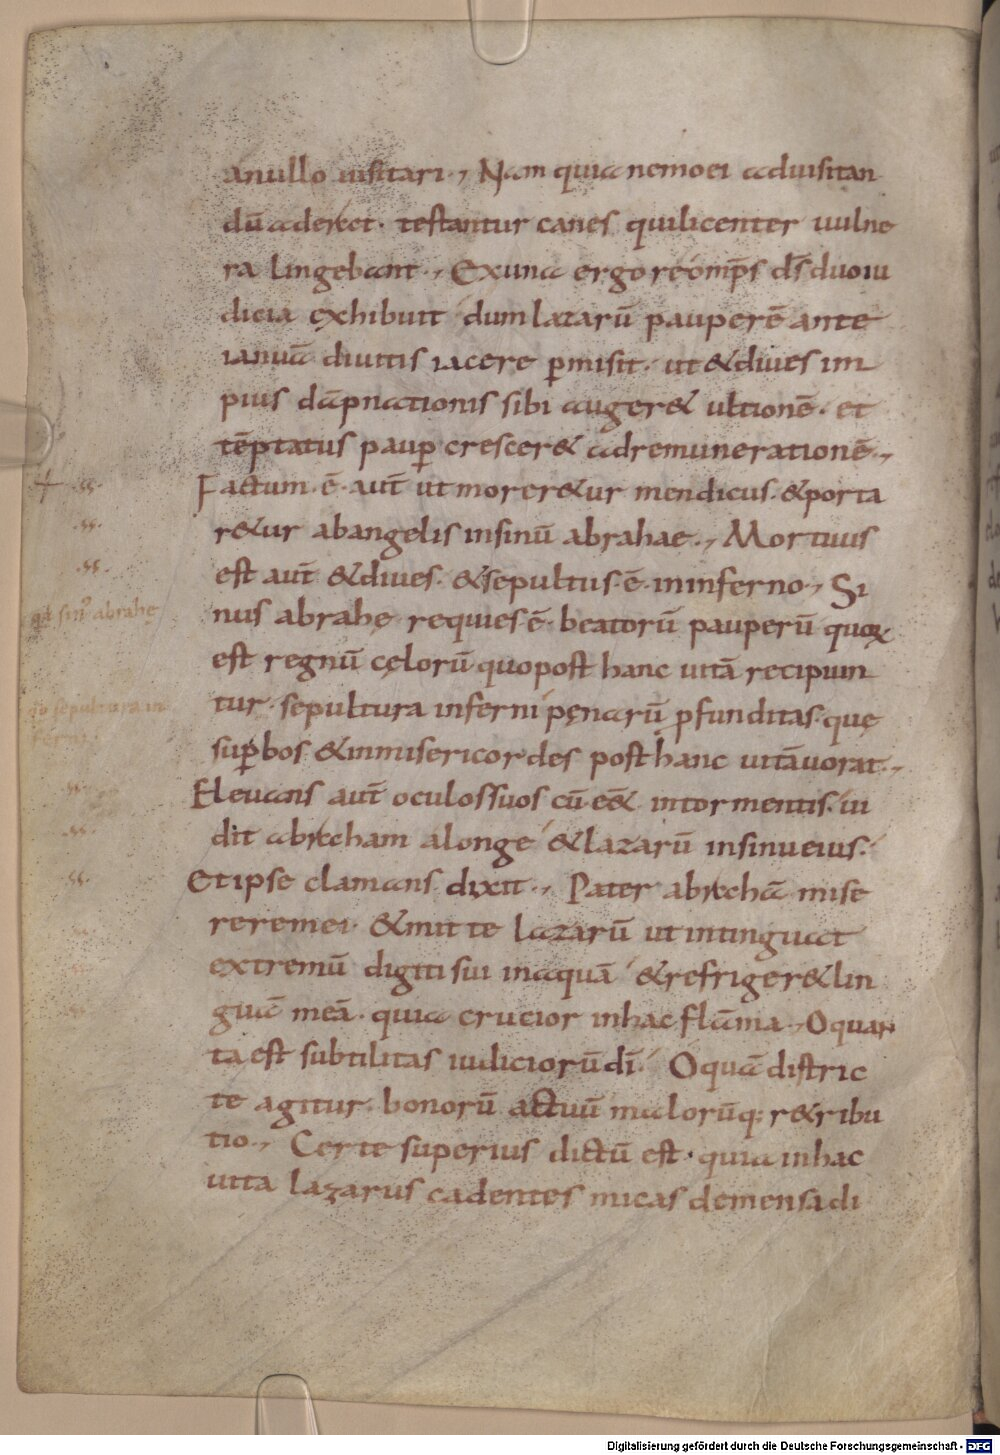 anullo uisitari., Nam quia nemo ei aduisitan
dū adesset. testantur canes qui licenter uulne
ra lingebant., Ex una ergo re omp̄s d̄s duo iu
dicia exhibuit dum lazarū pauperē ante
ianuā diuitis iacere p̱misit. ut & diues im
pius dāpnationis sibi auger& ultionē. et
tēptatus paup̱ crescer& ad remunerationē.,
Factum .ē. aut̄ ut morer&ur mendicus. & porta
r&ur ab angelis in sinū abrahae., Mortuus
est aut̄ & diues. & sepultus .ē. in inferno., Si
nus abrahę requies .ē. beatorū pauperū quoꝝ
est regnū cęlorū quo post hanc uitā recipiun
tur. sepultura inferni pęnarū pfunditas. quę
sup̱bos & inmisericordes post hanc uitā uorat.,
Eleuans aut̄ oculos suos cū ēē& in tormentis. ui
dit abraham a longe & lazarū in sinu eius.
Et ipse clamans dixit., Pater abrahā mise
rere mei. & mitte lazarū ut intinguat
extremū digiti sui in aquā & refriger& lin
guā meā. quia crucior in hac flāma., O quan
ta est subtilitas iudiciorū dī. O quā distric
te agitur. bonorū actuū malorūq; r&ribu
tio., Certe superius dictū est. quia in hac
uita lazarus cadentes micas de mensa di
ss.
ss.
ss.
qd sin' abrahę
sepultura in
ferni
ss.
ss.
ss.
Digitalisierung gefördert durch die Deutsche Forschungsgemeinschaft - DFG